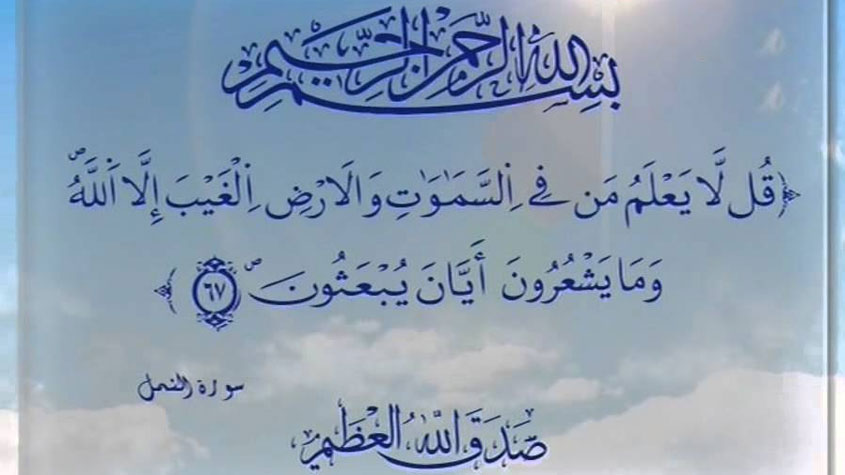 بِسْمِ اللهِ الرَّحْمٰنِ الرَّحِيمِ
﴿قُل لَّا يَعْلَمُ مَن فِے اِ۬لسَّمَٰوَٰتِ وَالَارْضِ اِ۬لْغَيْبَ إِلَّا اَ۬للَّهُۖ
وَمَا يَشْعُرُونَ أَيَّانَ يُبْعَثُونَۖ ٦٧﴾
سورة النمل
صَدَقَ اللهُ العَظِيْم